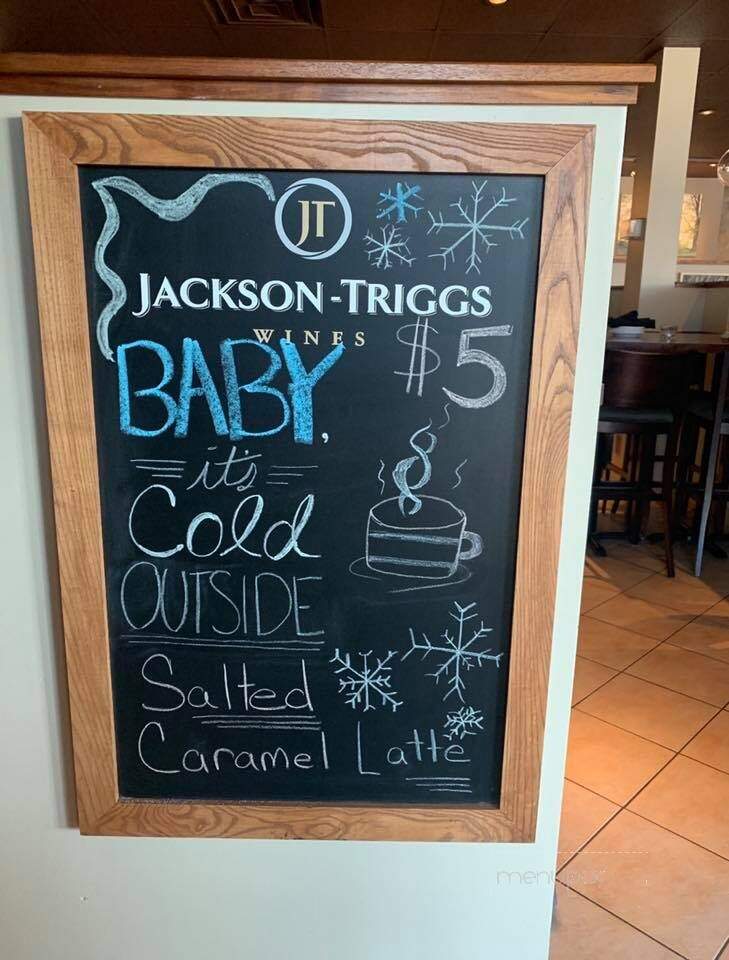 JT
JACKSON-TRIGGS
WINES
$5
BABY,
it's
Cold
OUTSIDE
Salted
Caramel Latte
menupix